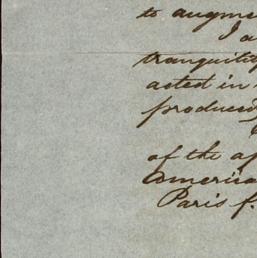 to augme
I a
tranquility
acted in
produced
of the ap
America
Paris f.